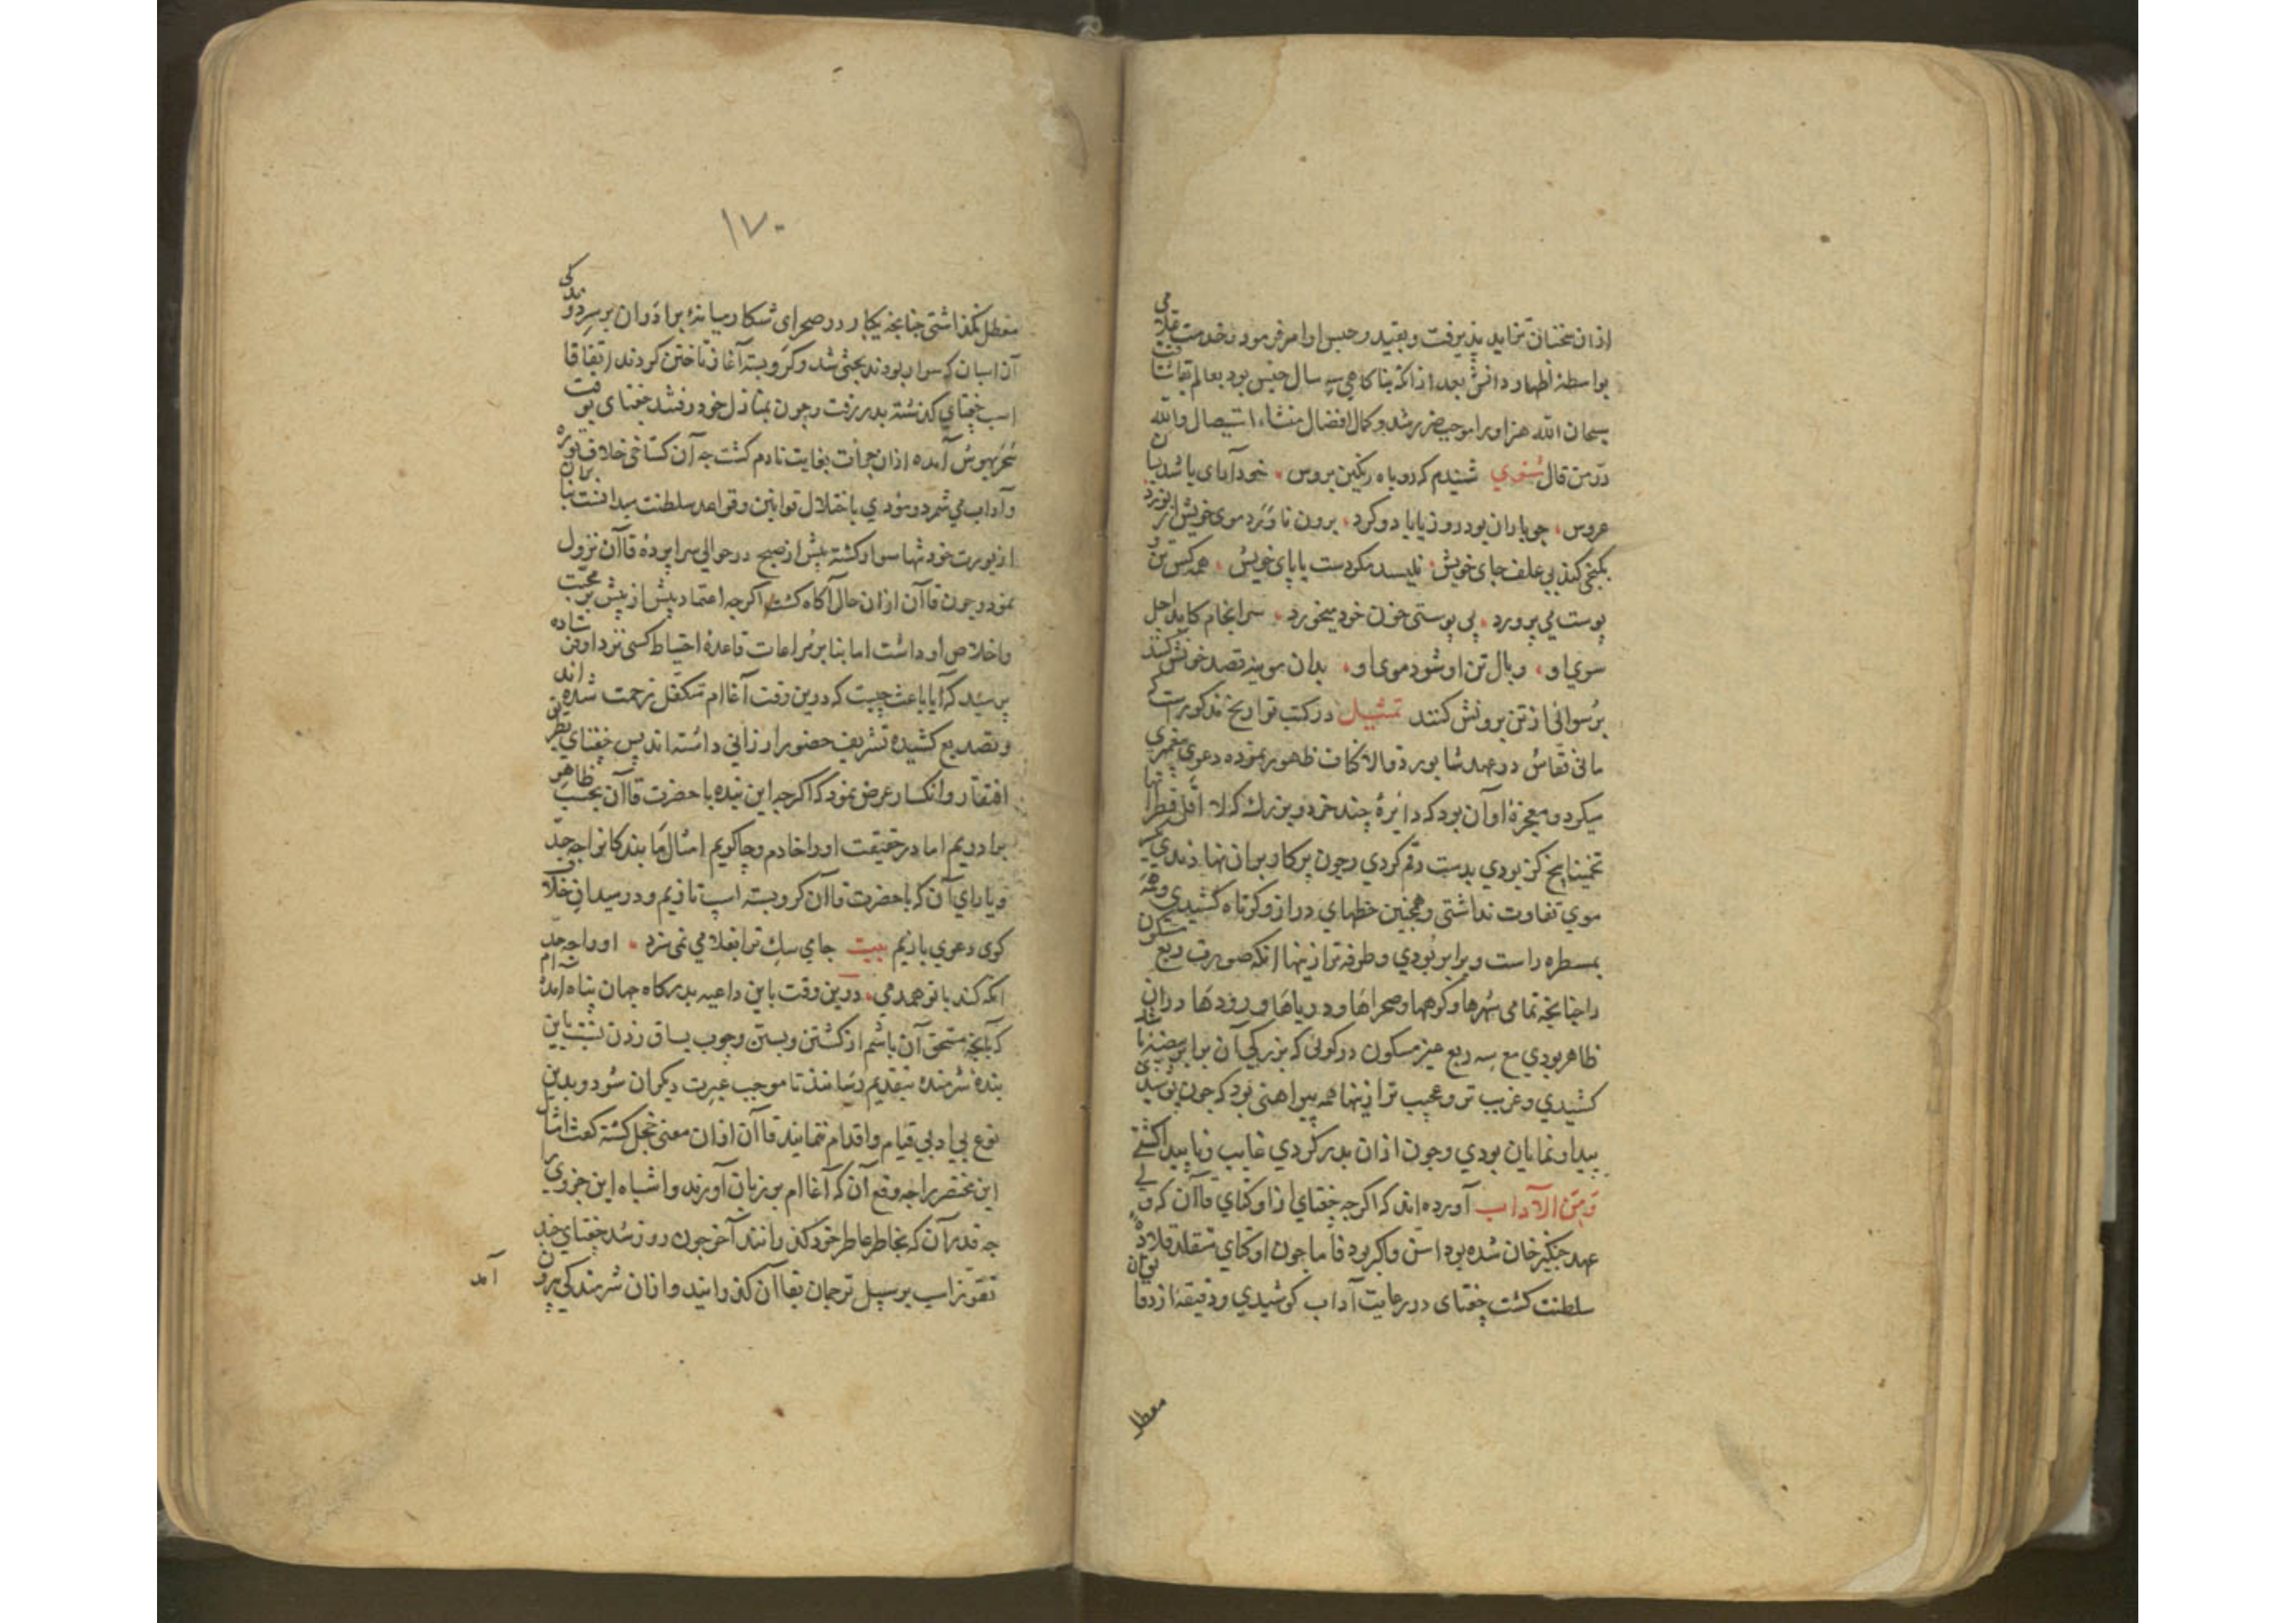 از آن سخنان نماید پذیرفت و بقید و حبس او امر فرمود و خدمت قلامی
بواسطهٔ اظهار دانش بعد از آنکه بناکامی سه سال حبس بود بعالم بقا شتافت
سبحان الله هنر او را موجب ضرر شد و کمال افضال منشاء استیصال ولله
درّ من قال مثنوی شنیدم که روباه رنگین بروس خودآرای باشد بسان
عروس جو باران بود روز یا باد و کرد برون ناورد موی خویش از نورد
بکنجی کند بی علف جای خویش نلیسد مکر دست با پای خویش همه کس تن و
پوست می پرورد پی پوستی خون خود میخورد سرانجام کاید اجل
سوی او وبال تن او شود موی او بدان موینه قصد خونش کنند
برسوائی از تن برونش کنند تمثیل در کتب تواریخ مذکورست که
مانی نقاش در عهد شاپور ذوالاکتاف ظهور نموده دعوی پیغمبری
میکرد و معجزهٔ او آن بود که دایرهٔ چند خرد و بزرک که لا اقل قطر آنها
تخمینا پنج کز بودی بدست رقم کردی و چون پرکار بران نهادندی یک سر
موی تفاوت نداشتی و همچنین خطهای دراز و کوتاه کشیدی و همه
بمسطره راست و برابر بودی و طرفه تر ازینها آنکه صورت ربع مسکون
را چنانچه تمامی شهرها و کوهها و صحراها و دریاها و رودها در آن
ظاهر بودی مع سه ربع غیر مسکون در کوئی که بزرکی آن برابر بیضه باشد
کشیدی و غریب تر و عجیب تر ازینها همه پیراهنی بود که چون پوشیدی
پیدا و نمایان بودی و چون از آن بدر کردی غایب و ناپیدا کشتی
و من الآداب آورده اند که اکرچه جغتای از اوکتای قاآن که ولی
عهد جنکیز خان شده بود اسن و اکبر بود فاما چون اوکتای متقلد قلاده
سلطنت کشت جغتای در رعایت آداب کوشیدی و دقیقهٔ از دقایق آن
معطل
۱۷۰
معطل نکذاشتی چنانچه یکبار در صحرای شکار میانهٔ برادران بر سر دوندکی
آن اسبان که سوار بودند بحثی شد و کرو بسته آغاز تاختن کردند اتفاقا
اسب جغتای کذشته بدر رفت و چون بمنازل خود رفتند جغتای بوقت
سحر بهوش آمده از آن جرأت بغایت نادم کشت چه آن کستاخی خلاف توره
و آداب می شمرد و مؤدی باختلال قوانین و قواعد سلطنت میدانست بنابران
از یورت خود تنها سوار کشته پیش از صبح در حوالی سراپردهٔ قاآن نزول
نمود و چون قاآن از آن حال آکاه کشت اکرچه اعتماد بیش از پیش بر محبت
و اخلاص او داشت اما بنا بر مراعات قاعدهٔ احتیاط کسی نزد او فرستاده
پرسید که آیا باعث چیست که درین وقت آغاام متکفل زحمت شده اند
و تصدیع کشیده تشریف حضور ارزانی داشته اند پس جغتای بطریق
افتقار و انکسار عرض نمود که اکرچه این بنده با حضرت قاآن بحسب ظاهر
برادریم اما در حقیقت او را خادم و چاکریم امثال ما بندکانرا چه حد
و یارای آن که با حضرت قاآن کرو بسته اسپ تازیم و در میدان خلاف
کوی دعوی بازیم بیت جای سک ترا بغلامی نمی سزد او را چه حد
آنکه کند با تو همدمی درین وقت باین داعیه بدرکاه جهان پناه آمده ام
که آنچه مستحق آن باشم از کشتن و بستن و چوب یساق زدن نسبت باین
بندهٔ شرمنده بتقدیم رسانند تا موجب عبرت دیکران شود و بدین
نوع بی ادبی قیام و اقدام ننمایند قاآن از آن معنی خجل کشته کفت امثال
این مختصر را چه وقع آن که آغاام بر زبان آورند و اشباه این جزوی را
چه قدر آن که بخاطر عاطر خود کذرانند آخر چون روز شد جغتای چند
تقوز اسب بر سبیل ترجمان بقاآن کذرانید و از آن شرمندکی برون
آمد